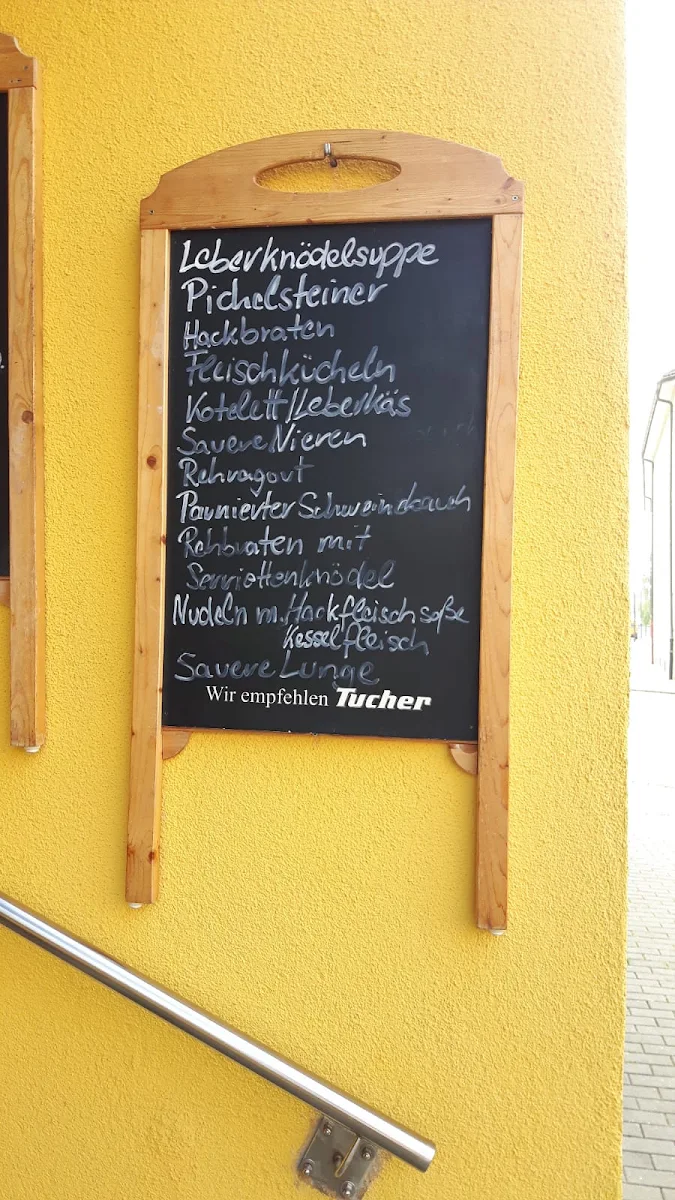 Leberknödelsuppe
Pichelsteiner
Hackbraten
Fleischkücheln
Kotelett/Leberkäs
Sauere Nieren
Rehragout
Paunierter Schweinsbauch
Rehbraten mit
Serviettenknödel
Nudeln m. Hackfleischsoße
Kesselfleisch
Sauere Lunge
Wir empfehlen Tucher